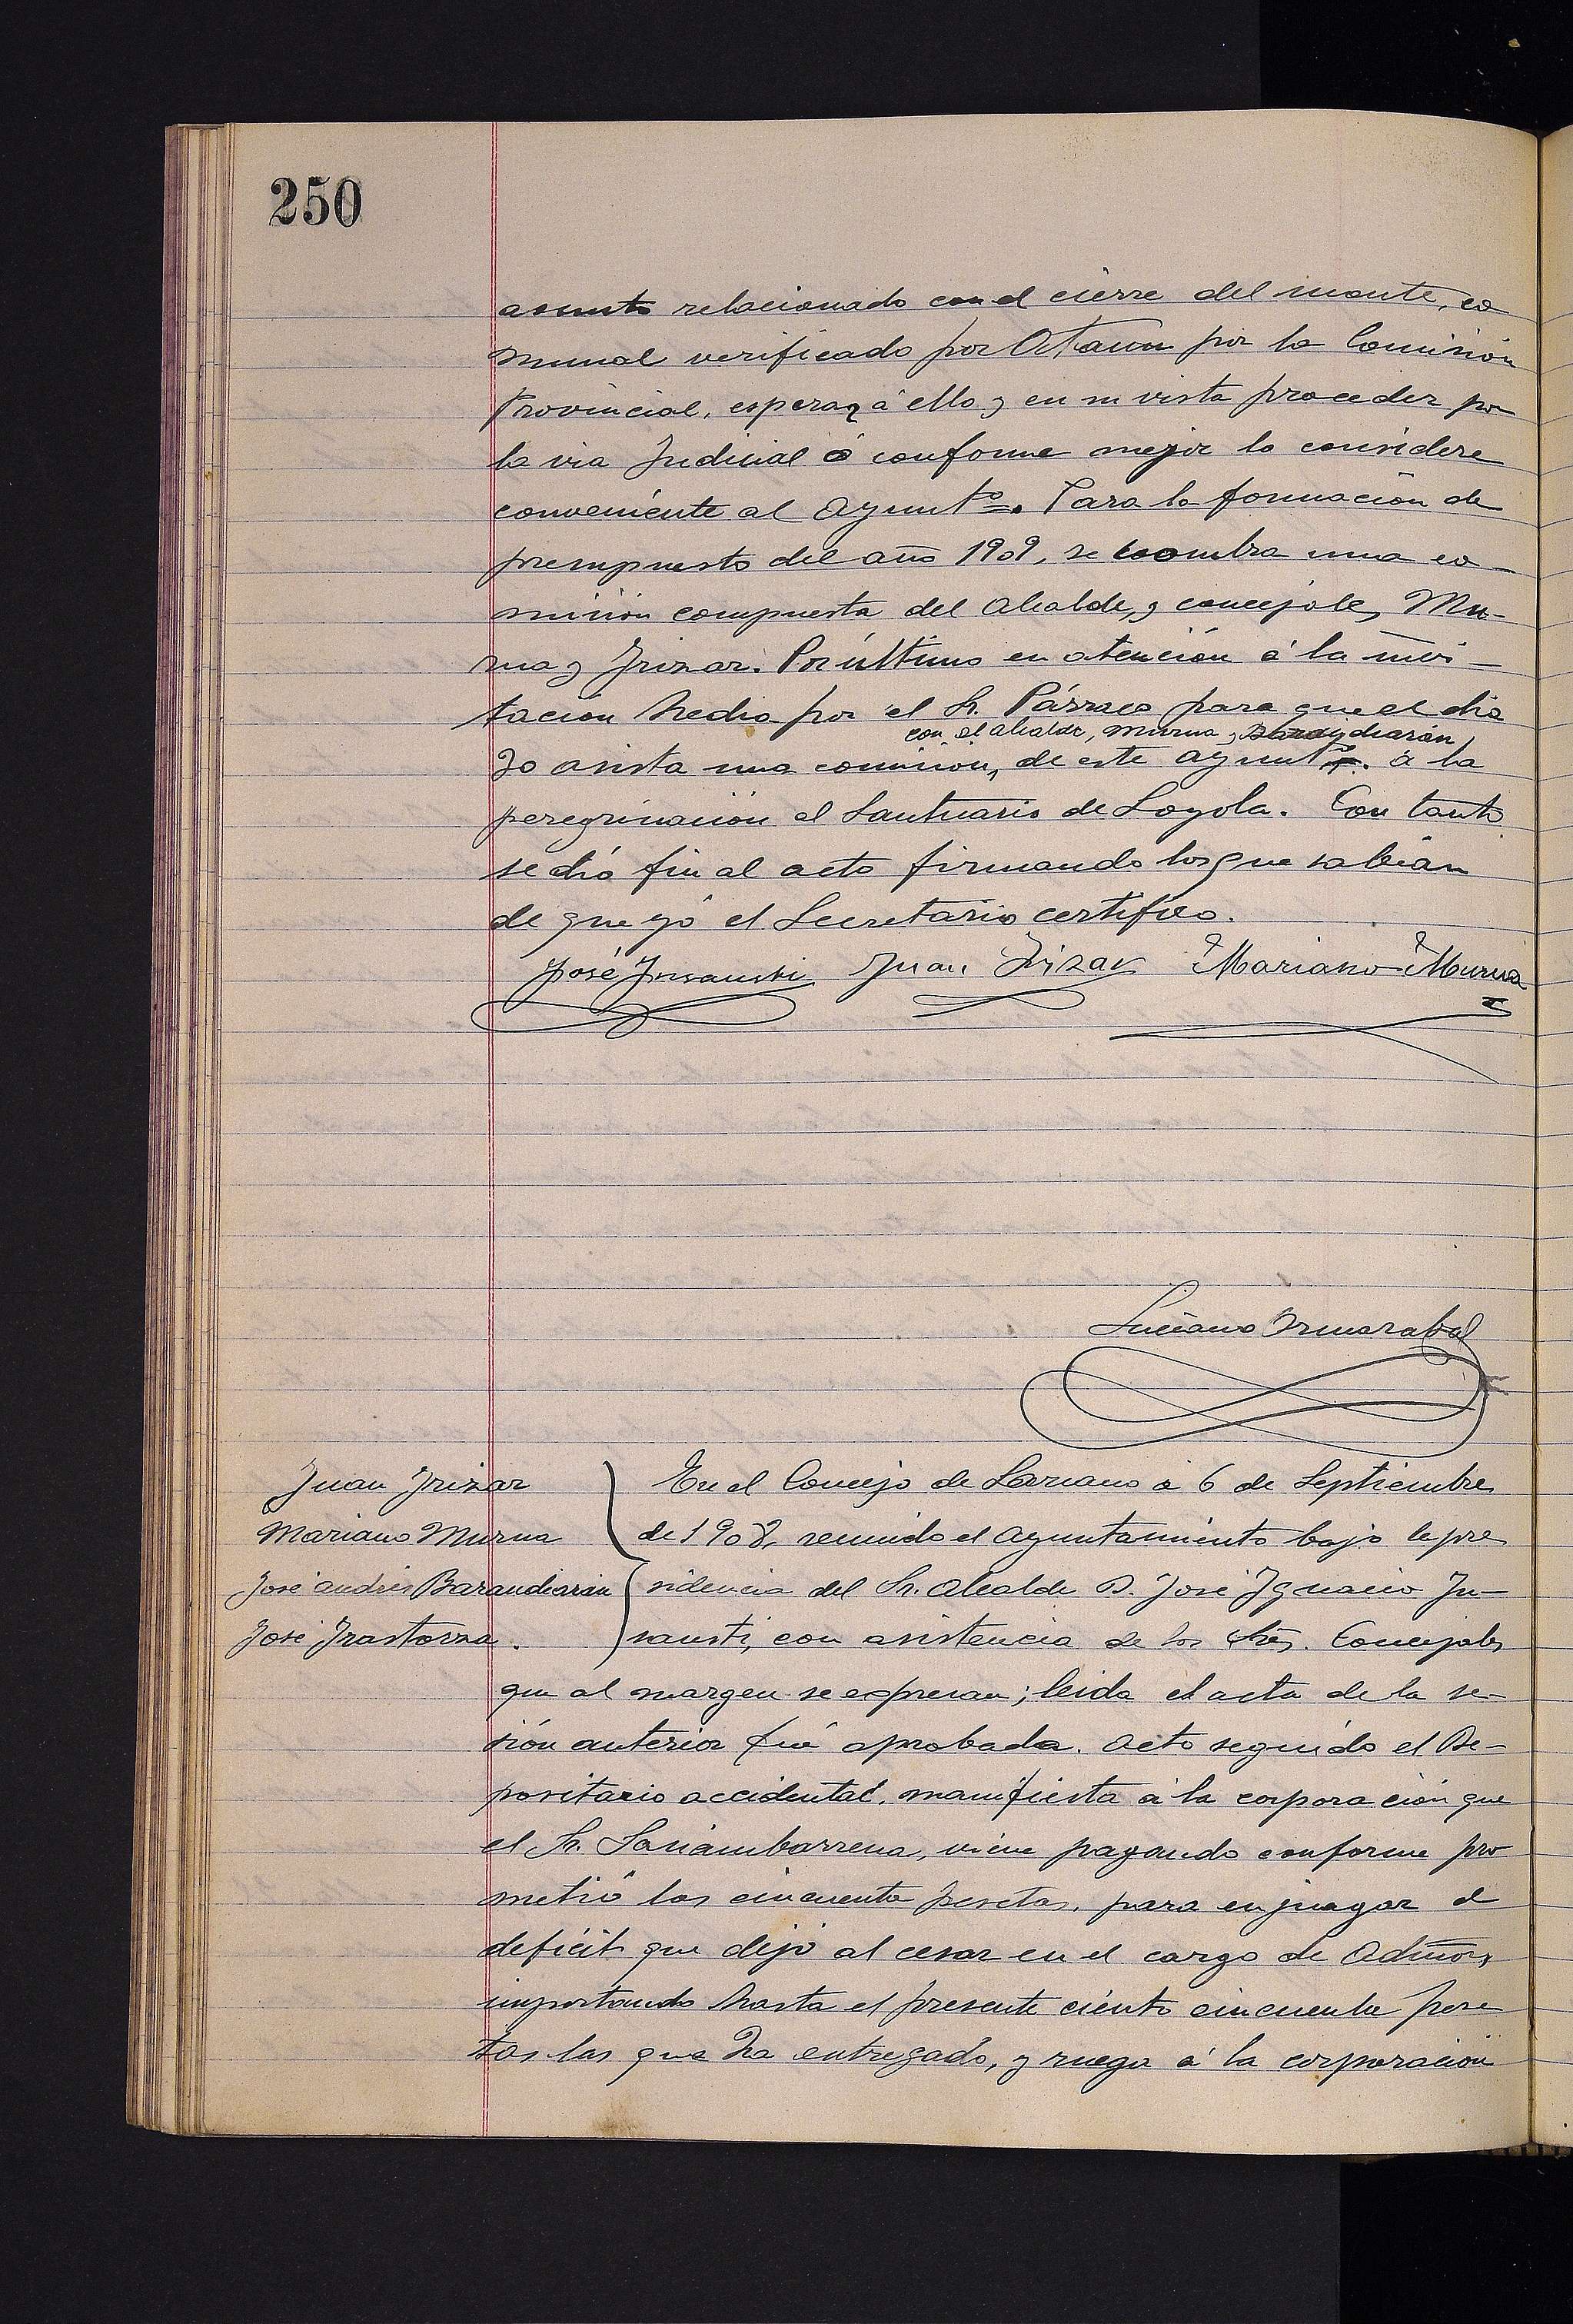 250
asunto relacionado con el cierre del monte, co
munal verificado por Ataun por la Comisión
Provincial, esperar á ello y en su vista proceder por
la via Judicial ó conforme mejor lo considere
conveniente al Ayuntº. Para la formación de
presupuesto del año 1909, se nombra una co-
misión compuesta del Alcalde, y concejales, Mu-
rua y Irizar. Por último en atención á la invi-
tación hecha por el Sr. Párraco para que el dia
con el alcalde, Murua y Barandiarán
30 asista una comisión, de este Ayuntº. á la
peregrinación al Santuario de Loyola. Con tanto
se dió fin al acto firmando los que sabian
de que yó el Secretario certifico.
José Insausti Juan Irizar Mariano Murua
Luciano
Juan Irizar
Mariano Murua
José Andrés Barandiarán
José Irastorza.
En el Concejo de Lazcano á 6 de Septiembre
de 1908, reunido el Ayuntamiento bajo la pre
sidencia del Sr. Alcalde D. José Ignacio In-
sausti, con asistencia de los Sres. Concejales
que al margen se expresan; leida el acta de la se-
sión anterior fué aprobada. Acto seguido el De-
positario accidental, manifiesta á la corporación que
el Sr. viene pagando conforme pro
metió las cincuenta pesetas, para enjuagar el
deficit que dejó al cesar en el cargo de Admor,
importando hasta el presente ciento cincuenta pese
tas las que ha entregado, y ruega á la corporación